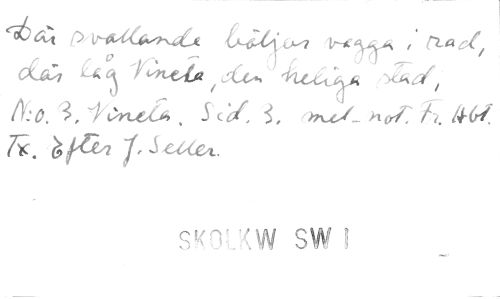 Där svallande böljor vagga i rad,
där låg Vineta, den heliga stad,
N:o. 3. Vineta. Sid. 3. mel-not. Fr. Abt.
Tx. Efter J. Seller.
SKOLKW SW I